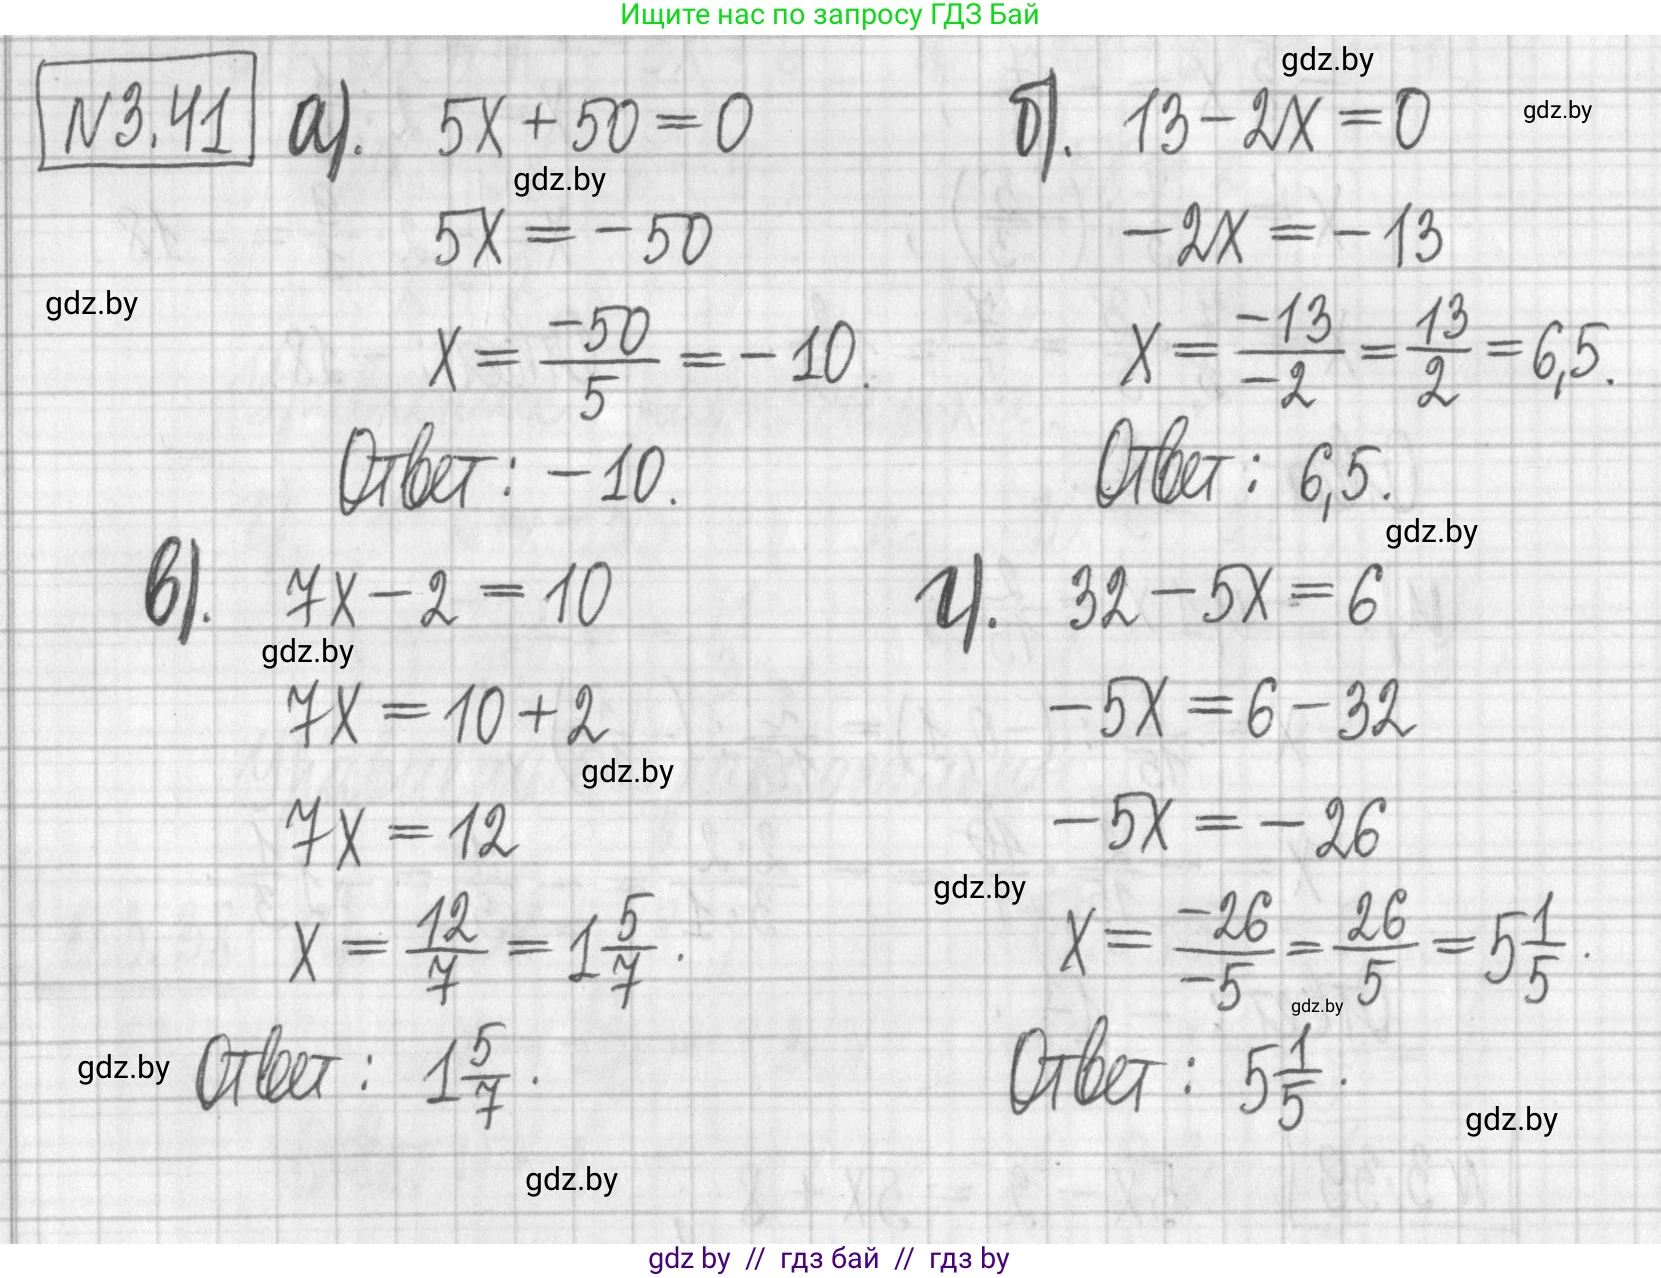 Ищите нас по запросу ГДЗ Бай
gdz.by
gdz.by
N3.41 а). 5x + 50 = 0
gdz.by
5x = -50
gdz.by
x = -50/5 = -10.
Ответ: -10.
б). 13 - 2x = 0
-2x = -13
x = -13/-2 = 13/2 = 6,5.
Ответ: 6,5.
gdz.by
в). 7x - 2 = 10
gdz.by
7x = 10 + 2
gdz.by
7x = 12
x = 12/7 = 1 5/7.
gdz.by
Ответ: 1 5/7.
gdz.by
г). 32 - 5x = 6
-5x = 6 - 32
-5x = -26
gdz.by
x = -26/-5 = 26/5 = 5 1/5.
gdz.by
Ответ: 5 1/5.
gdz.by
gdz by // гдз бай // гдз by